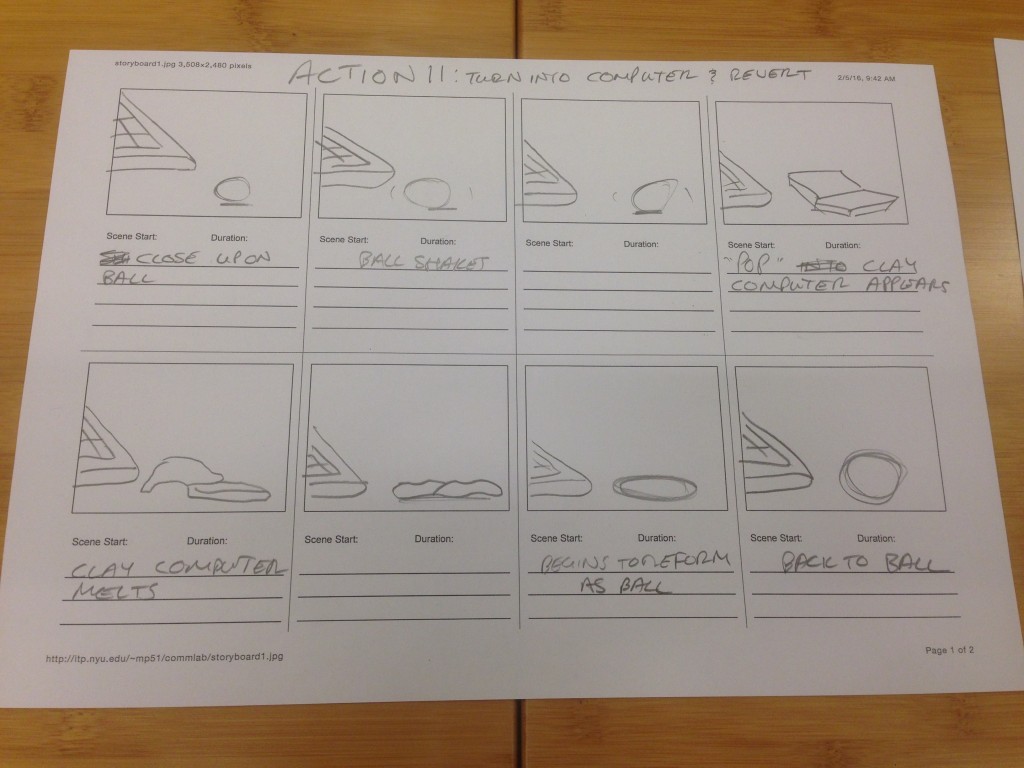 storyboard1.jpg 3,508×2,480 pixels
ACTION 11: TURN INTO COMPUTER & REVERT
2/5/16, 9:42 AM
Scene Start: Duration:
CLOSE UP ON
BALL
Scene Start: Duration:
BALL SHAKES
Scene Start: Duration:
Scene Start: Duration:
"POP" CLAY
COMPUTER APPEARS
Scene Start: Duration:
CLAY COMPUTER
MELTS
Scene Start: Duration:
Scene Start: Duration:
BEGINS TO REFORM
AS BALL
Scene Start: Duration:
BACK TO BALL
http://itp.nyu.edu/~mp51/commlab/storyboard1.jpg
Page 1 of 2